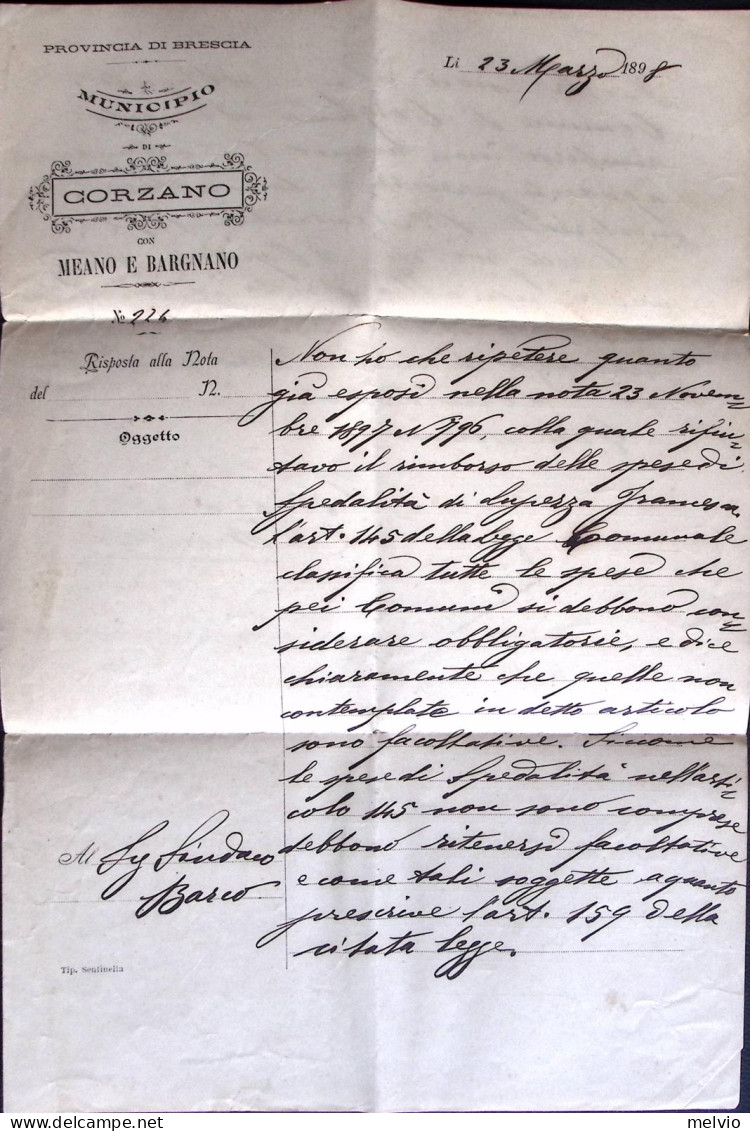 PROVINCIA DI BRESCIA
MUNICIPIO
DI
CORZANO
CON
MEANO E BARGNANO
No 226
Li 23 Marzo 1898
Risposta alla Nota
del N.
Oggetto
Non ho che ripetere quanto
già esposi nella nota 23 Novem-
bre 1897 N 796, colla quale rifiu-
tavo il rimborso delle spese di
Spedalità di Lupezza Francesca.
L'art. 145 della Legge Comunale
classifica tutte le spese che
pei Comuni si debbono con-
siderare obbligatorie, e dice
chiaramente che quelle non
contemplate in detto articolo
sono facoltative. Siccome
le spese di Spedalità nell'arti-
colo 145 non sono comprese
debbono ritenersi facoltative
e come tali soggette a quanto
prescrive l'art. 159 della
citata legge.
Al Sg Sindaco
Barco
Tip. Sentinella
melvio